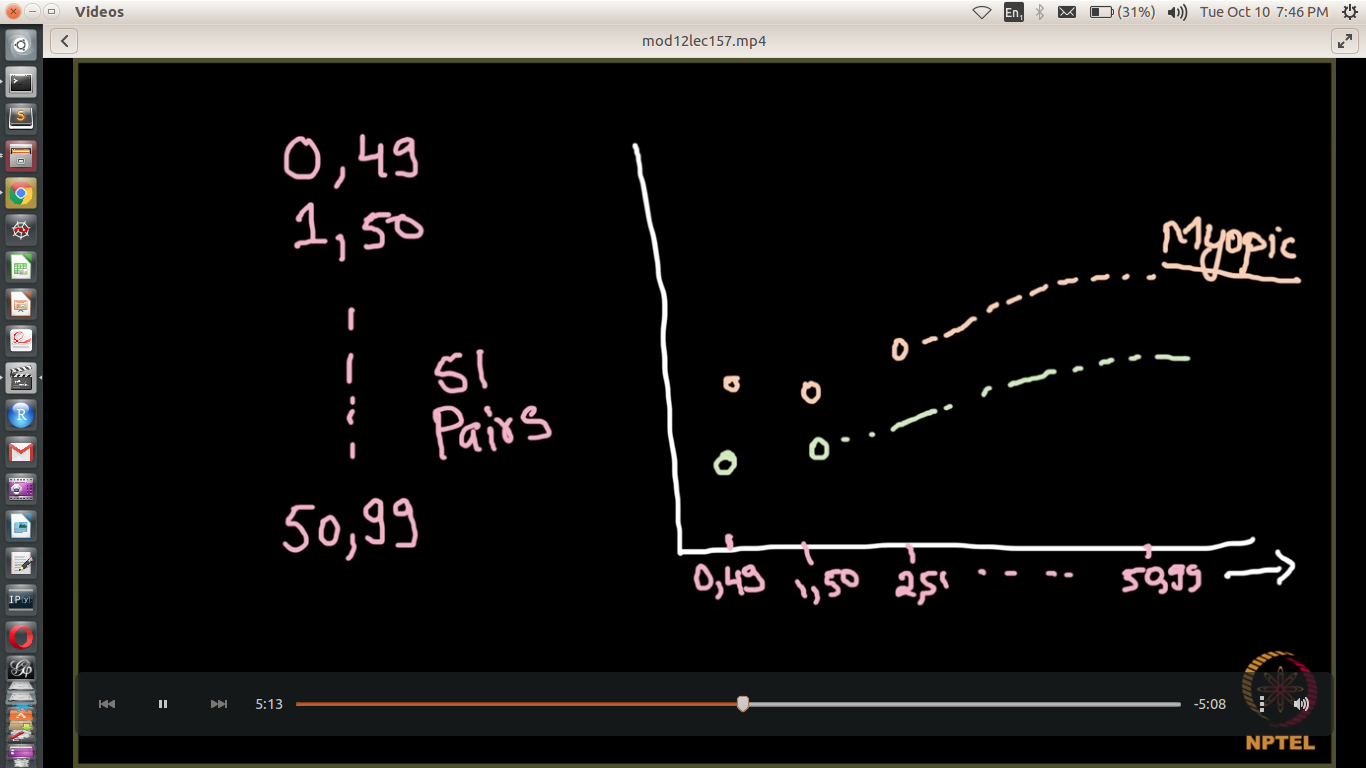 Videos
En1
(31%)
Tue Oct 10 7:46 PM
mod12lec157.mp4
0,49
1,50
51
Pairs
50,99
Myopic
0,49
1,50
2,51
50,99
5:13
-5:08
NPTEL